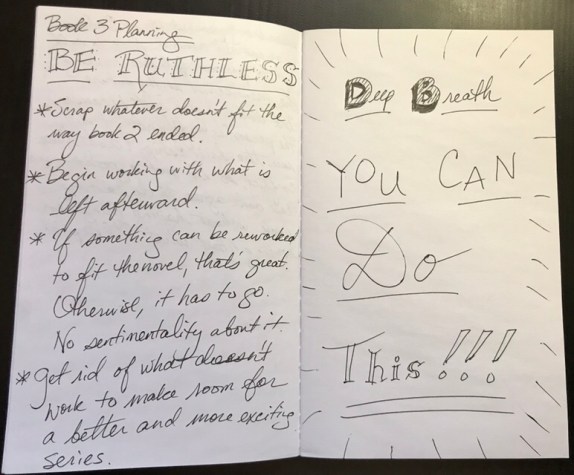 Book 3 Planning
BE RUTHLESS
* Scrap whatever doesn't fit the
way book 2 ended.
* Begin working with what is
left afterward.
* If something can be reworked
to fit the novel, that's great.
Otherwise, it has to go.
No sentimentality about it.
* Get rid of what doesn't
work to make room for
a better and more exciting
series.
Deep Breath
YOU CAN
Do
This!!!